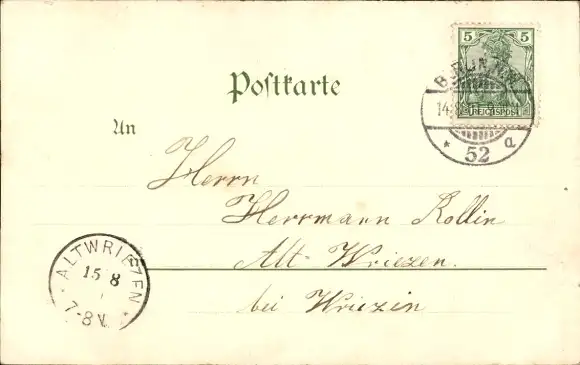 5 5
REICHSPOST
BERLIN N.W.
52 a
Postkarte
An
Herrn
Herrmann Rollin
Alt-Wriezen.
bei Wriezin
ALTWRIEZEN
15 8
7-8V.